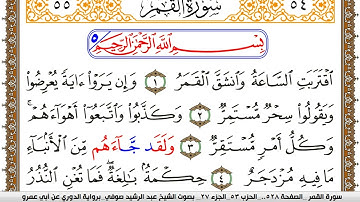 ٥٥ سُورَةُ الْقَمَرِ ٥٤
بِسْمِ اللَّهِ الرَّحْمَٰنِ الرَّحِيمِ ٥
اقْتَرَبَتِ السَّاعَةُ وَانشَقَّ الْقَمَرُ ١ وَإِن يَرَوْا ءَايَةً يُعْرِضُوا
وَيَقُولُوا سِحْرٌ مُّسْتَمِرٌّ ٢ وَكَذَّبُوا وَاتَّبَعُوا أَهْوَاءَهُمْ
وَكُلُّ أَمْرٍ مُّسْتَقِرٌّ ٣ وَلَقَد جَّاءَهُم مِّنَ الْأَنبَاءِ
مَا فِيهِ مُزْدَجَرٌ ٤ حِكْمَةٌ بَالِغَةٌ فَمَا تُغْنِ النُّذُرُ
سورة القمر _الصفحة ٥٢٨_ الحزب ٥٣_الجزء ٢٧ _ بصوت الشيخ عبد الرشيد صوفي_ برواية الدوري عن أبي عمرو